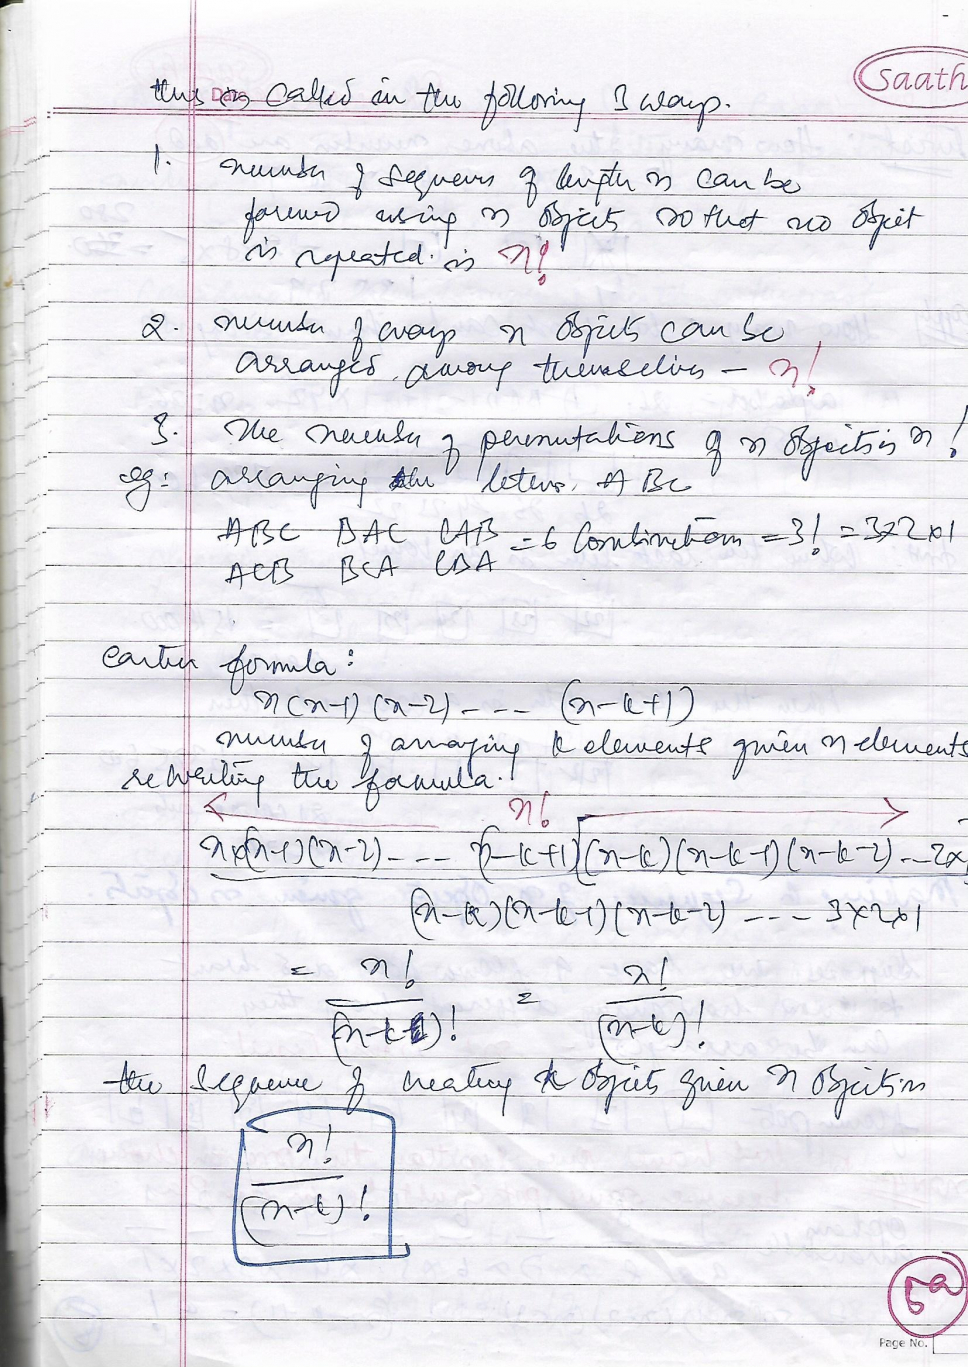 Saath
Date
this is called in the following 3 ways.
1. number of sequences of length n can be
formed using n objects so that no object
is repeated. is n!
2. number of ways n objects can be
arranged, among themselves - n!
3. the number of permutations of n objects is n!
eg: arranging the letters. ABC
ABC BAC CAB = 6 Combinations = 3! = 3×2×1
ACB BCA CBA
earlier formula:
n(n-1)(n-2)---- (n-k+1)
number of arranging k elements given n elements
rewriting the formula.
n!
n×(n-1)(n-2)---- (n-k+1)(n-k)(n-k-1)(n-k-2)--2×1
(n-k)(n-k-1)(n-k-2)---- 3×2×1
= n!/(n-k)! = n!/(n-k)!
the sequence of creating k objects given n objects is
n!
(n-k)!
5a
Page No.